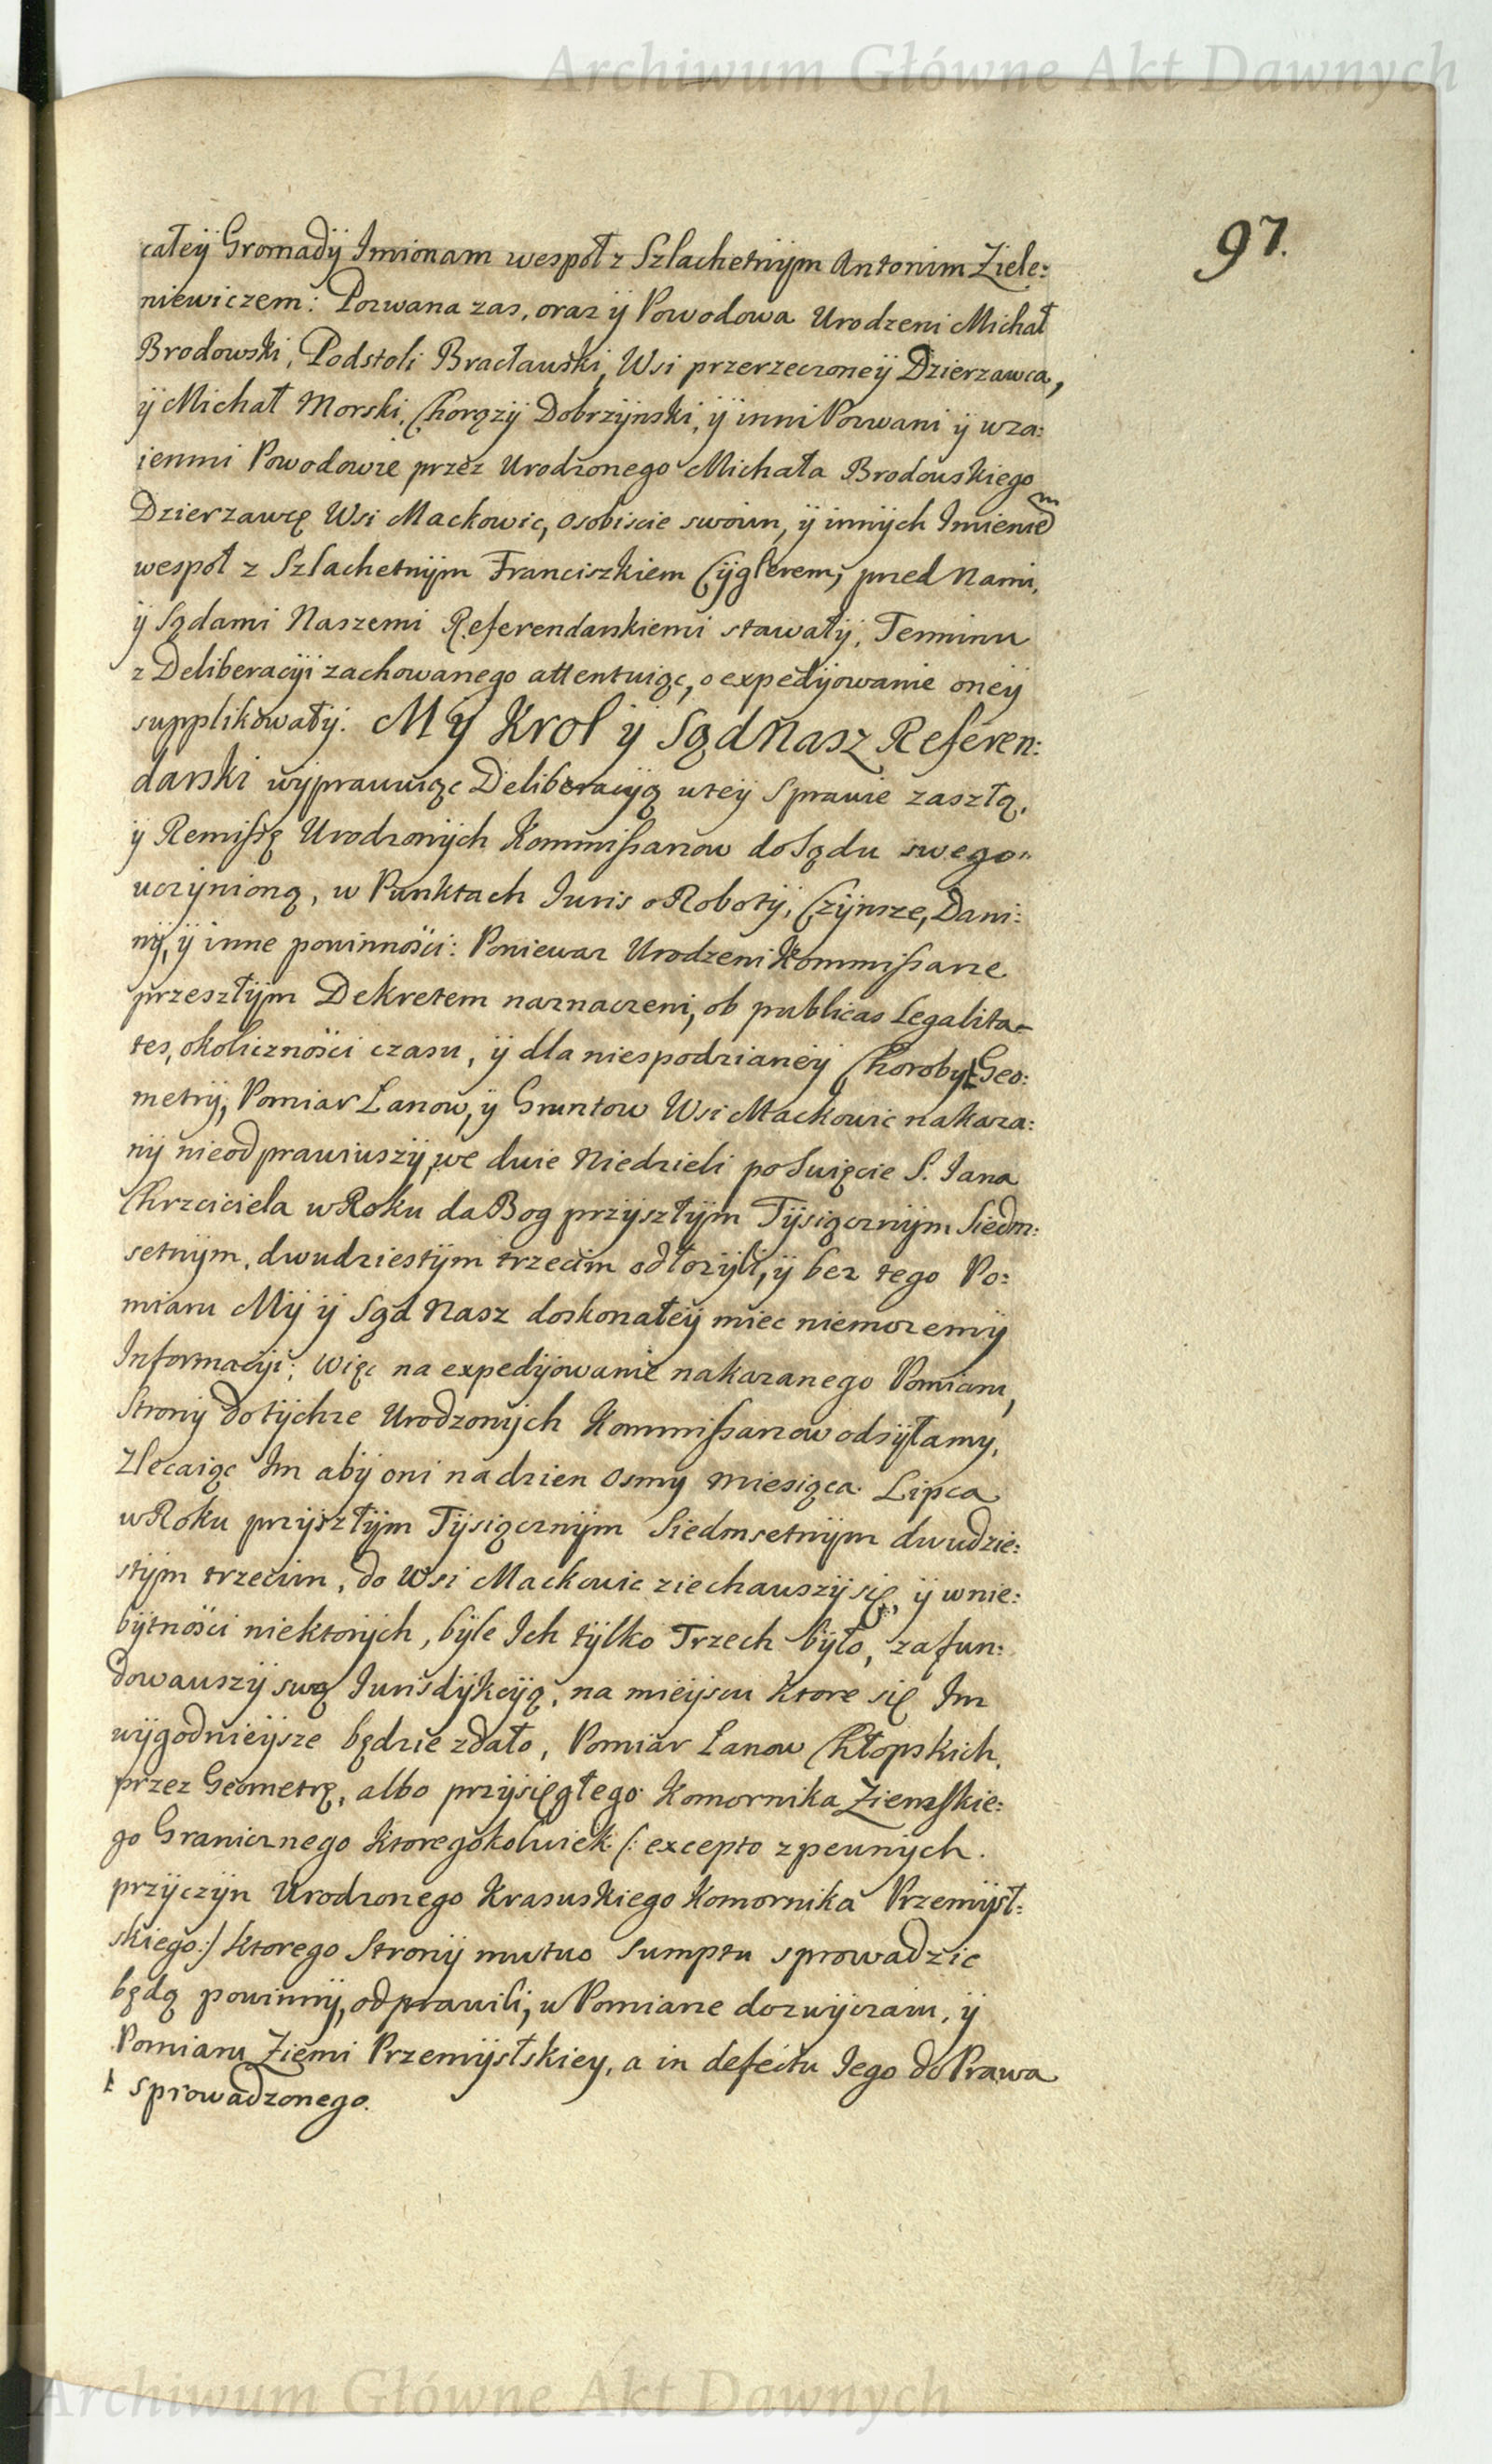 Archiwum Główne Akt Dawnych
97.
całeÿ Gromadÿ Imionam wespoł z Szlachetnÿm Antonim Ziele:
niewiczem: Pozwana zas, oraz ÿ Powodowa Urodzeni Michał
Brodowski, Podstoli Bracławski, Wsi przerzeczoneÿ Dzierzawca,
ÿ Michał Morski, Chorązÿ Dobrzÿnski, ÿ inni Pozwani ÿ wza:
iemni Powodowie przez Urodzonego Michała Brodowskiego
Dzierzawcę Wsi Mackowic, osobiscie swoim, ÿ innÿch Imieniem
wespoł z Szlachetnÿm Franciszkiem Cÿglerem, przed Nami,
ÿ Sądami Naszemi Referendarskiemi stawałÿ, Terminu
z Deliberacÿi zachowanego attentuiąc, o expedÿowanie oneÿ
supplikowałÿ. MY Krol ÿ Sąd Nasz Referen:
darski wÿprawuiąc Deliberacÿą wteÿ Sprawie zaszłą,
ÿ Remissę Urodzonÿch Kommissarzow do Sądu swego
uczÿnioną, w Punktach Iuris o Robotÿ, Czÿnsze, Dani:
nÿ, ÿ inne powinności: Poniewaz Urodzeni Kommissarze
przeszłÿm Dekretem naznaczeni, ob publicas Legalita-
tes, okoliczności czasu, ÿ dla niespodzianeÿ Chorobÿ Geo:
metrÿ, Pomiar Lanow, ÿ Gruntow Wsi Mackowic nakaza:
nÿ nieodprawiwszÿ, we dwie Niedzieli po Swięcie S. Iana
Chrzciciela w Roku da Bog przÿszłÿm Tÿsiącznÿm Siedm:
setnÿm, dwudziestÿm trzecim odłozÿli, ÿ bez tego Po:
miaru Mÿ ÿ Sąd Nasz doskonałeÿ miec niemozemÿ
Informacÿi; więc na expedÿowanie nakazanego Pomiaru,
Stronÿ do tÿchze Urodzonÿch Kommissarzow odsÿłamy,
Zlecaiąc Im abÿ oni na dzien osmy Miesiąca Lipca
w Roku przÿszłÿm Tÿsiącznÿm Siedmsetnÿm dwudzie:
stÿm trzecim, do Wsi Mackowic ziechawszÿ się, ÿ w nie:
bÿtności niektorÿch, bÿle Ich tÿlko Trzech bÿło, zafun:
dowawszÿ swą Iurisdÿkcÿą, na mieÿscu ktore się Im
wÿgodnieÿsze będzie zdało, Pomiar Lanow Chłopskich,
przez Geometrę, albo przÿsięgłego Komornika Ziemskie:
go Granicznego ktoregokolwiek (: excepto z pewnÿch
przÿczÿn Urodzonego Krasuskiego Komornika Przemÿsl:
skiego :) ktorego Stronÿ mutuo Sumptu sprowadzic
będą powinnÿ, odprawili, w Pomiarze dozwÿczaiu, ÿ
Pomiaru Ziemi Przemÿslskiey, a in defectu Iego do Prawa
sprowadzonego.
Archiwum Główne Akt Dawnych